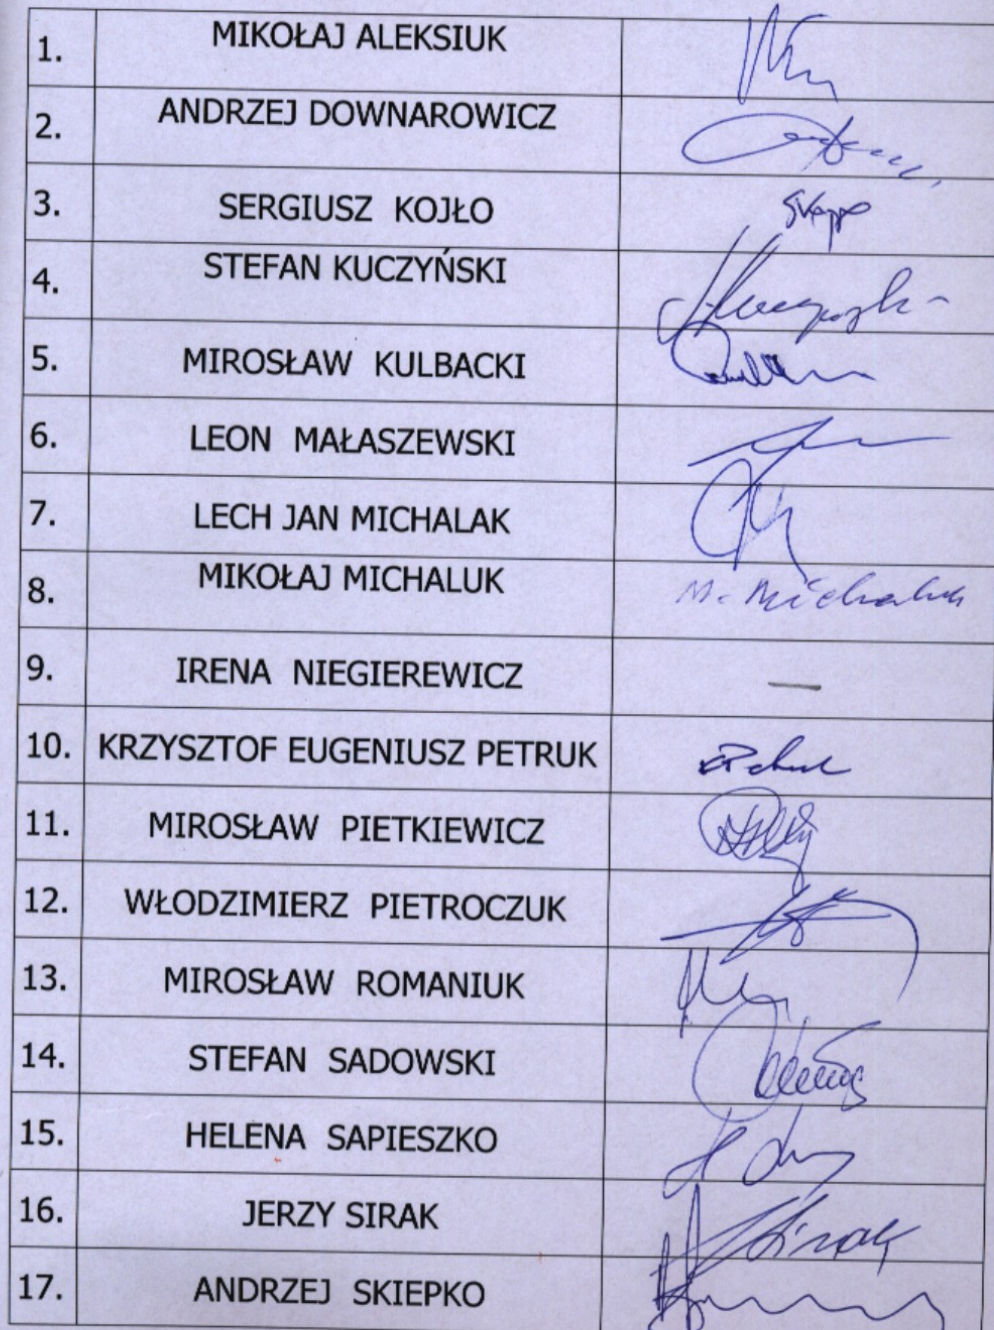 1. MIKOŁAJ ALEKSIUK
2. ANDRZEJ DOWNAROWICZ
3. SERGIUSZ KOJŁO
4. STEFAN KUCZYŃSKI
5. MIROSŁAW KULBACKI
6. LEON MAŁASZEWSKI
7. LECH JAN MICHALAK
8. MIKOŁAJ MICHALUK M. Michaluk
9. IRENA NIEGIEREWICZ —
10. KRZYSZTOF EUGENIUSZ PETRUK
11. MIROSŁAW PIETKIEWICZ
12. WŁODZIMIERZ PIETROCZUK
13. MIROSŁAW ROMANIUK
14. STEFAN SADOWSKI
15. HELENA SAPIESZKO
16. JERZY SIRAK Sirak
17. ANDRZEJ SKIEPKO